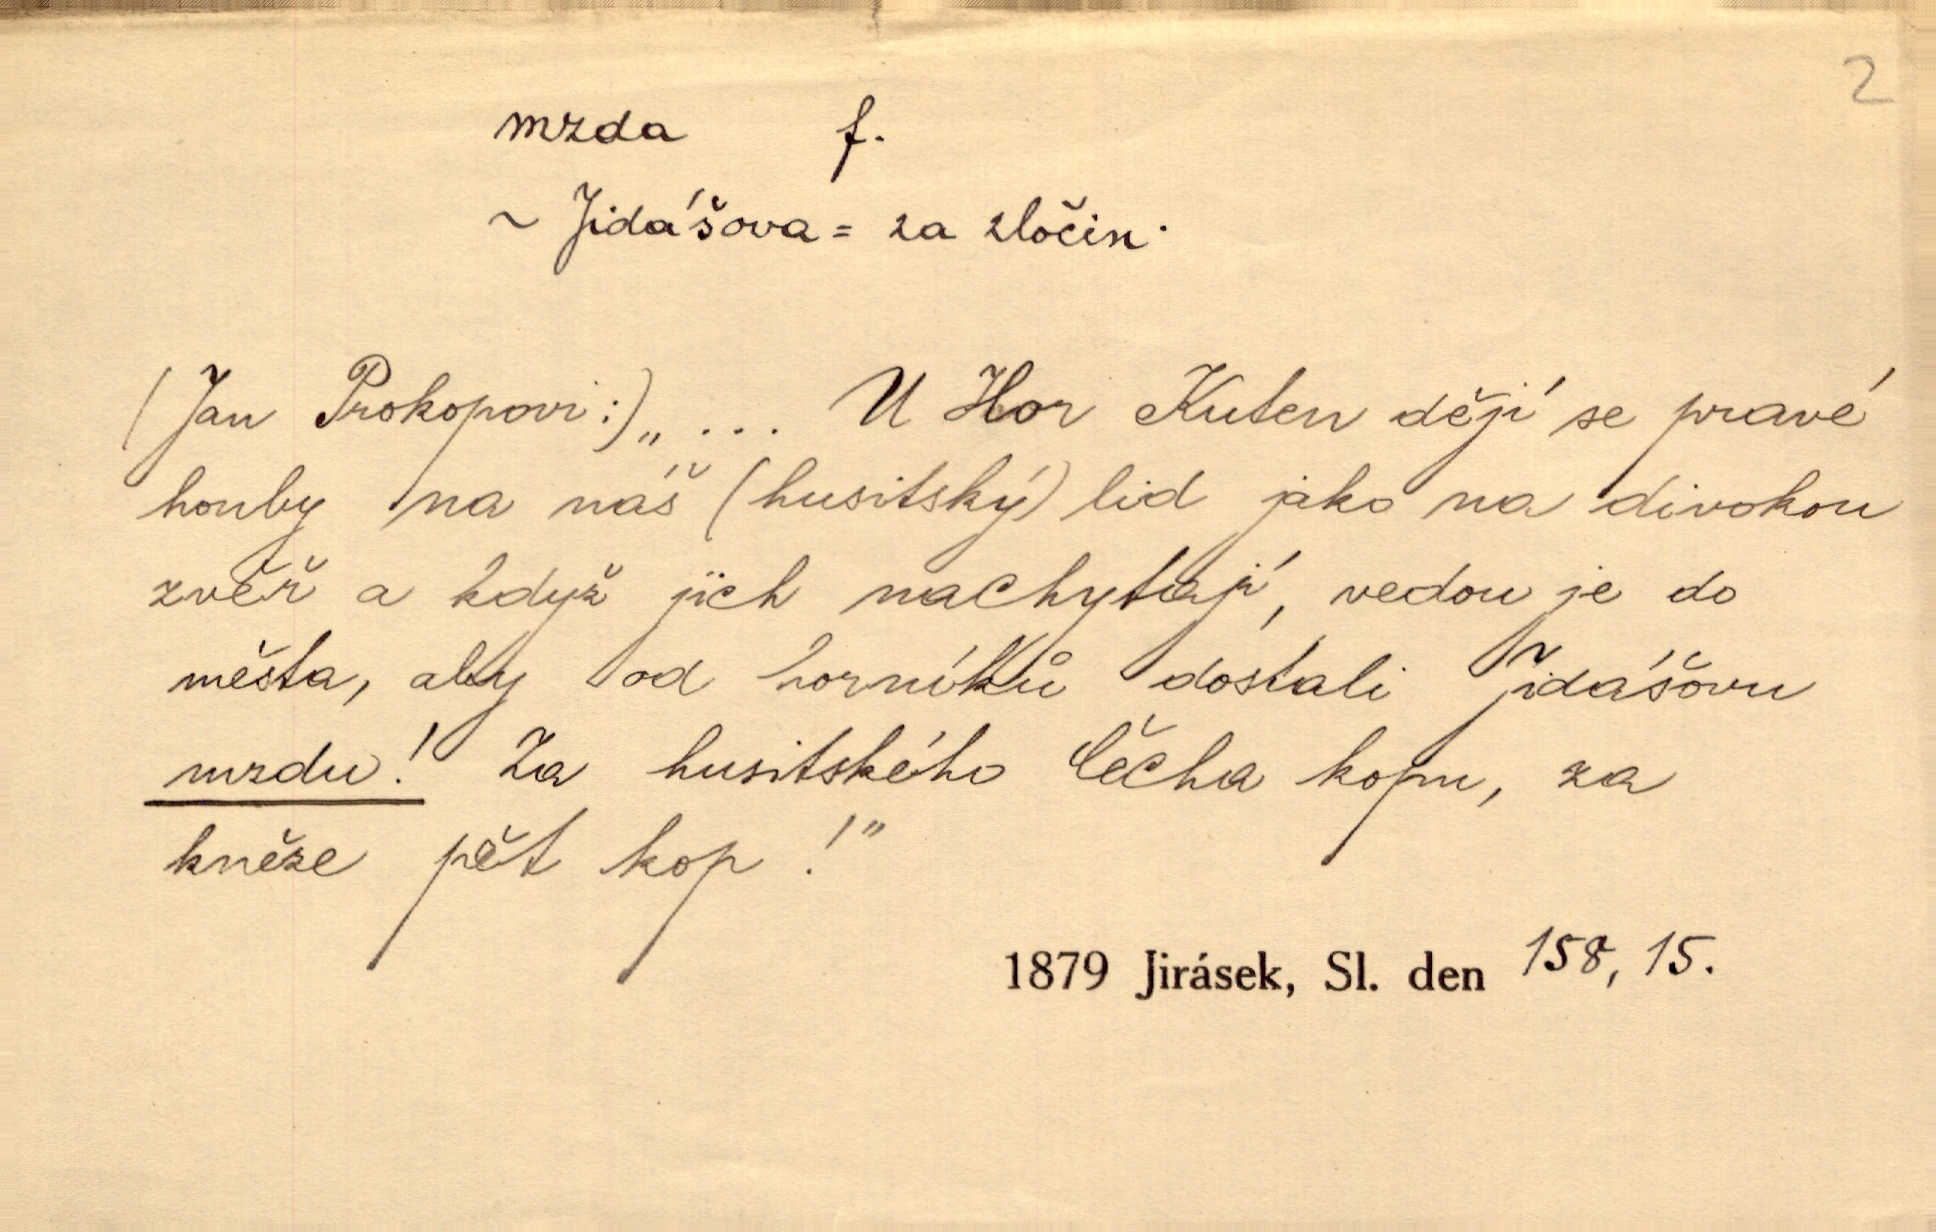 2
mzda f.
~ Jidášova = za zločin.
(Jan Prokopovi:) „... U Hor Kuten dějí se pravé
honby na náš (husitský) lid jako na divokou
zvěř a když jich nachytají, vedou je do
města, aby od horníků dostali Jidášovu
mzdu! Za husitského Čecha kopu, za
kněze pět kop!"
1879 Jirásek, Sl. den 158, 15.